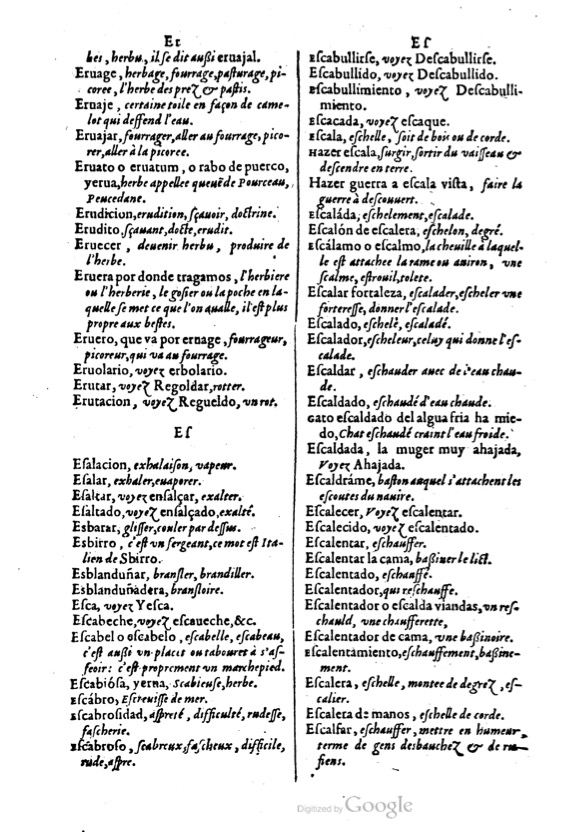 Er
bes, herbu, il ſe dit außi eruajal.
Eruage, herbage, fourrage, paſturage, pi-
coree, l'herbe des prez & paſtis.
Eruaje, certaine toile en façon de came-
lot qui deffend l'eau.
Eruajar, fourrager, aller au fourrage, pico-
rer, aller à la picoree.
Eruato o eruatum, o rabo de puerco,
yerua, herbe appellee queuë de Pourceau,
Peucedane.
Erudicion, erudition, ſçauoir, doctrine.
Erudito, ſçauant, docte, erudit.
Eruecer, deuenir herbu, produire de
l'herbe.
Eruera por donde tragamos, l'herbiere
ou l'herberie, le goſier ou la poche en la-
quelle ſe met ce que l'on aualle, il eſt plus
propre aux beſtes.
Eruero, que va por ernage, fourrageur,
picoreur, qui va au fourrage.
Eruolario, voyez erbolario.
Erutar, voyez Regoldar, rotter.
Erutacion, voyez Regueldo, vn rot.
Eſ
Eſalacion, exhalaiſon, vapeur.
Eſalar, exhaler, euaporer.
Eſaltar, voyez enſalçar, exalter.
Eſaltado, voyez enſalçado, exalté.
Esbarar, gliſſer, couler par deſſus.
Esbirro, c'eſt vn ſergeant, ce mot eſt Ita-
lien de Sbirro.
Esblanduñar, branſler, brandiller.
Esblanduñadera, branſloire.
Eſca, voyez Yeſca.
Eſcabeche, voyez eſcaueche, &c.
Eſcabel o eſcabelo, eſcabelle, eſcabeau,
c'eſt außi vn placet ou tabouret à s'aſ-
ſeoir: c'eſt proprement vn marchepied.
Eſcabióſa, yerna, Scabieuſe, herbe.
Eſcábro, Eſcreuiſſe de mer.
Eſcabroſidad, aſpreté, difficulté, rudeſſe,
faſcherie.
Eſcabroſo, ſcabreux, faſcheux, difficile,
rude, aſpre.
Eſ
Eſcabullirſe, voyez Deſcabullirſe.
Eſcabullido, voyez Deſcabullido.
Eſcabullimiento, voyez Deſcabulli-
miento.
Eſcacada, voyez eſcaque.
Eſcala, eſchelle, ſoit de bois ou de corde.
Hazer eſcala, ſurgir, ſortir du vaiſſeau &
deſcendre en terre.
Hazer guerra a eſcala viſta, faire la
guerre à deſcouuert.
Eſcaláda, eſchelement, eſcalade.
Eſcalón de eſcalera, eſchelon, degré.
Eſcálamo o eſcalmo, la cheuille à laquel-
le eſt attachee la rame ou auiron, vne
ſcalme, eſtrouil, tolete.
Eſcalar fortaleza, eſcalader, eſcheler vne
fortereſſe, donner l'eſcalade.
Eſcalado, eſchelé, eſcaladé.
Eſcalador, eſcheleur, celuy qui donne l'eſ-
calade.
Eſcaldar, eſchauder auec de l'eau chau-
de.
Eſcaldado, eſchaudé d'eau chaude.
Gato eſcaldado del agua fria ha mie-
do, Chat eſchaudé craint l'eau froide.
Eſcaldada, la muger muy ahajada,
Voyez Ahajada.
Eſcaldráme, baſton auquel s'attachent les
eſcoutes du nauire.
Eſcalecer, Voyez eſcalentar.
Eſcalecido, voyez eſcalentado.
Eſcalentar, eſchauffer.
Eſcalentar la cama, baßiner le lict.
Eſcalentado, eſchauffé.
Eſcalentador, qui reſchauffe.
Eſcalentador o eſcalda viandas, vn reſ-
chauld, vne chaufferette,
Eſcalentador de cama, vne baßinoire.
Eſcalentámiento, eſchauffement, baßine-
ment.
Eſcalera, eſchelle, montee de degrez, eſ-
calier.
Eſcalera de manos, eſchelle de corde.
Eſcalfar, eſchauffer, mettre en humeur,
terme de gens desbauchez & de ru-
fiens.
Digitized by Google